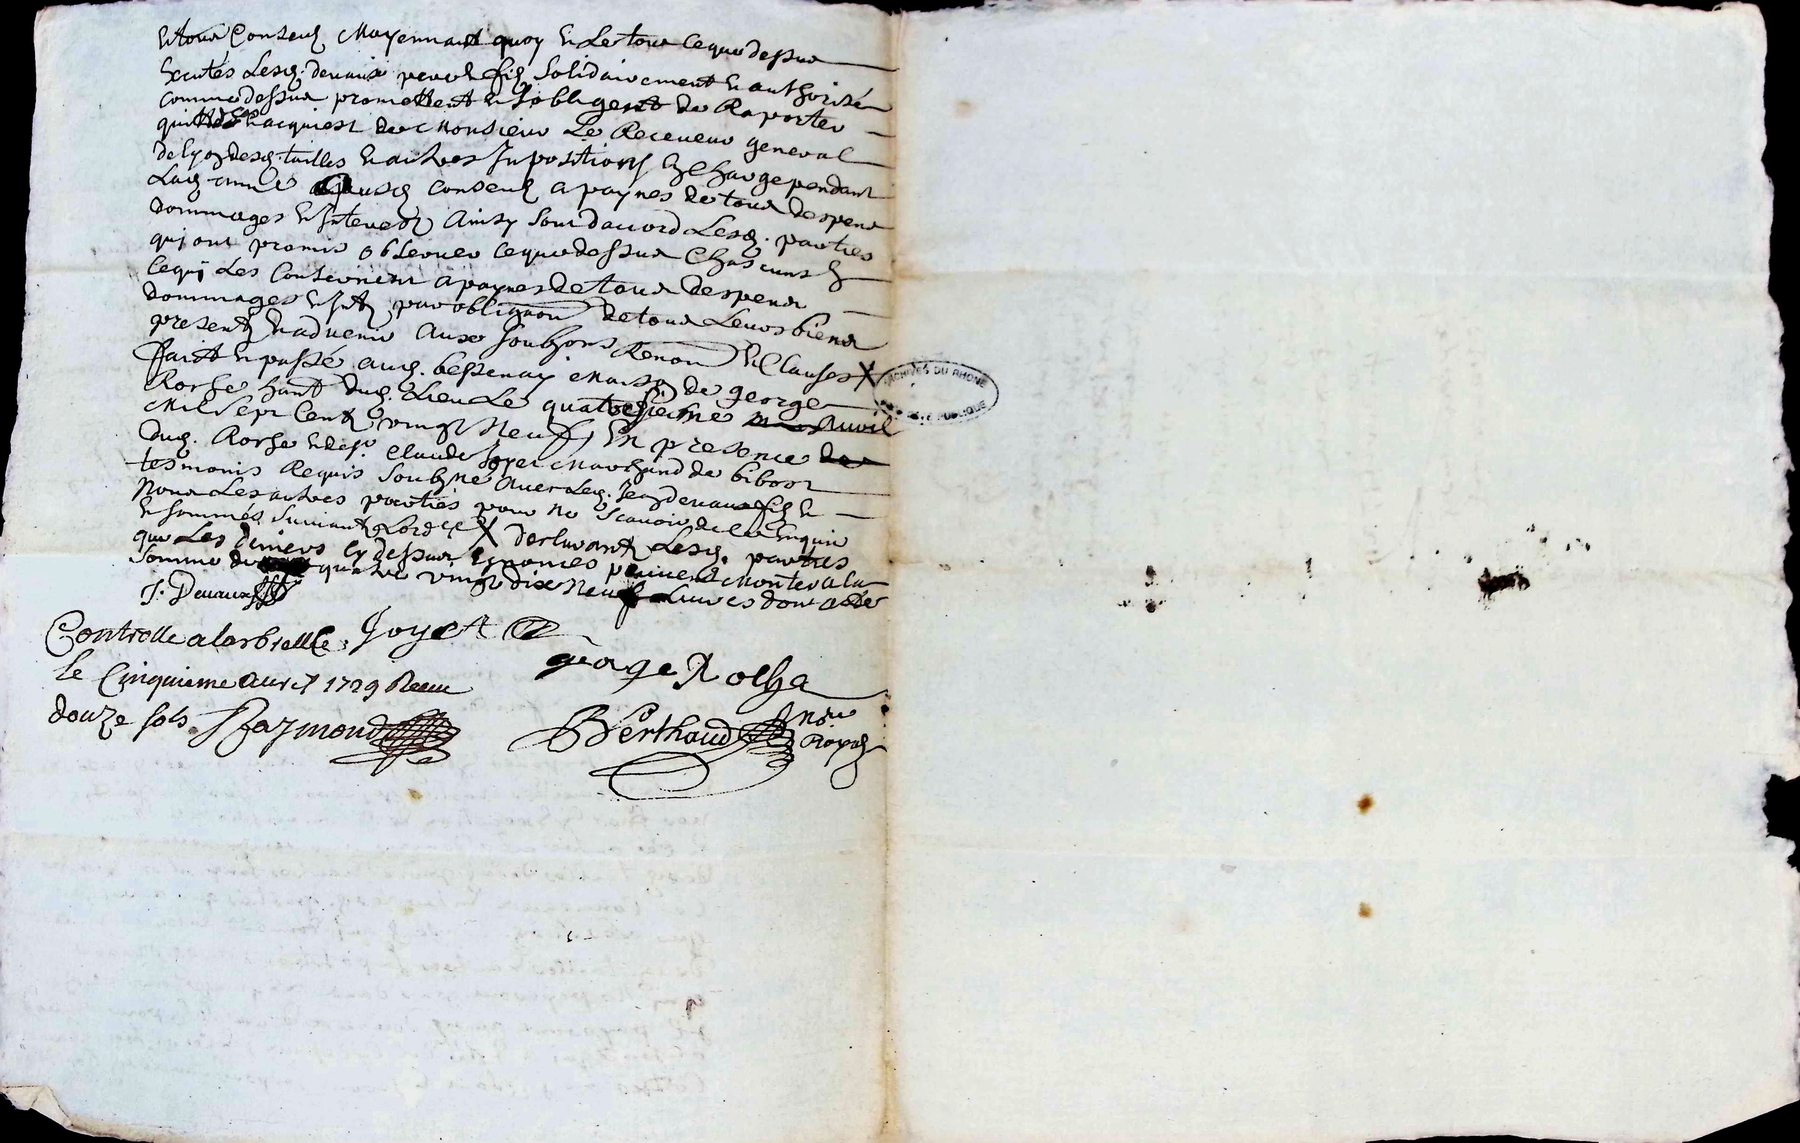 et tous conseuls Moyennant quoy et le tout ce que dessus
executés lesd. devaux pere et fils solidairement et authorisé
comme dessus promettent et s'obligent de Raporter
quittance et acquiest de Monsieur Le Receveur general
de lyon desd. tailles et autres Inpositions et charge pendant
Lad. année auxd. conseuls a paynes de tous despens
dommages et Interests Ainsy sont daccord Lesd. parties
qui ont promis observer ce que dessus chascuns en
ce qui Les Concernent a paynes de tous despens
dommages et Int. par obligaon de tous Leurs biens
presents et advenir Aux soubsons Renon et Clauses X
fait et passé aud. bessenay Maison de george
Rorhe hant dud. Lieu Le quatresieme Avril
Mil sept Cents vingt Neuf En presence
dud. Rorhe et de sr. Claude Joyet Marchand de bibost
tesmoins Requis soubsné avec led. Jean devaux fils et
Non Les autres parties pour ne scavoir de ce Enquis
et sommés suivant Lord. X desclarants Lesd. parties
que Les deniers cy dessus Enoncés peuvent Monter a la
somme de quatre vingt dix Neuf Livres dont acte
J. Devaux
Controlle a larbrelle Joyet
george Rolha
le Cinquieme avril 1729 Receu
douze sols Raymond
Berthaud Nore
Royal
ARCHIVES DU RHONE
PROPRIÉTÉ PUBLIQUE